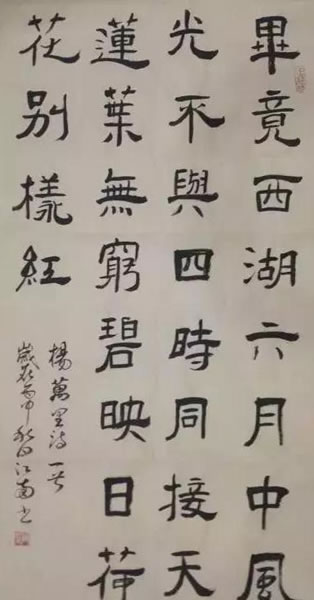 畢竟西湖六月中風
光不與四時同接天
蓮葉無窮碧映日荷
花别樣紅
楊萬里詩一首
歲在丙申秋日江南書